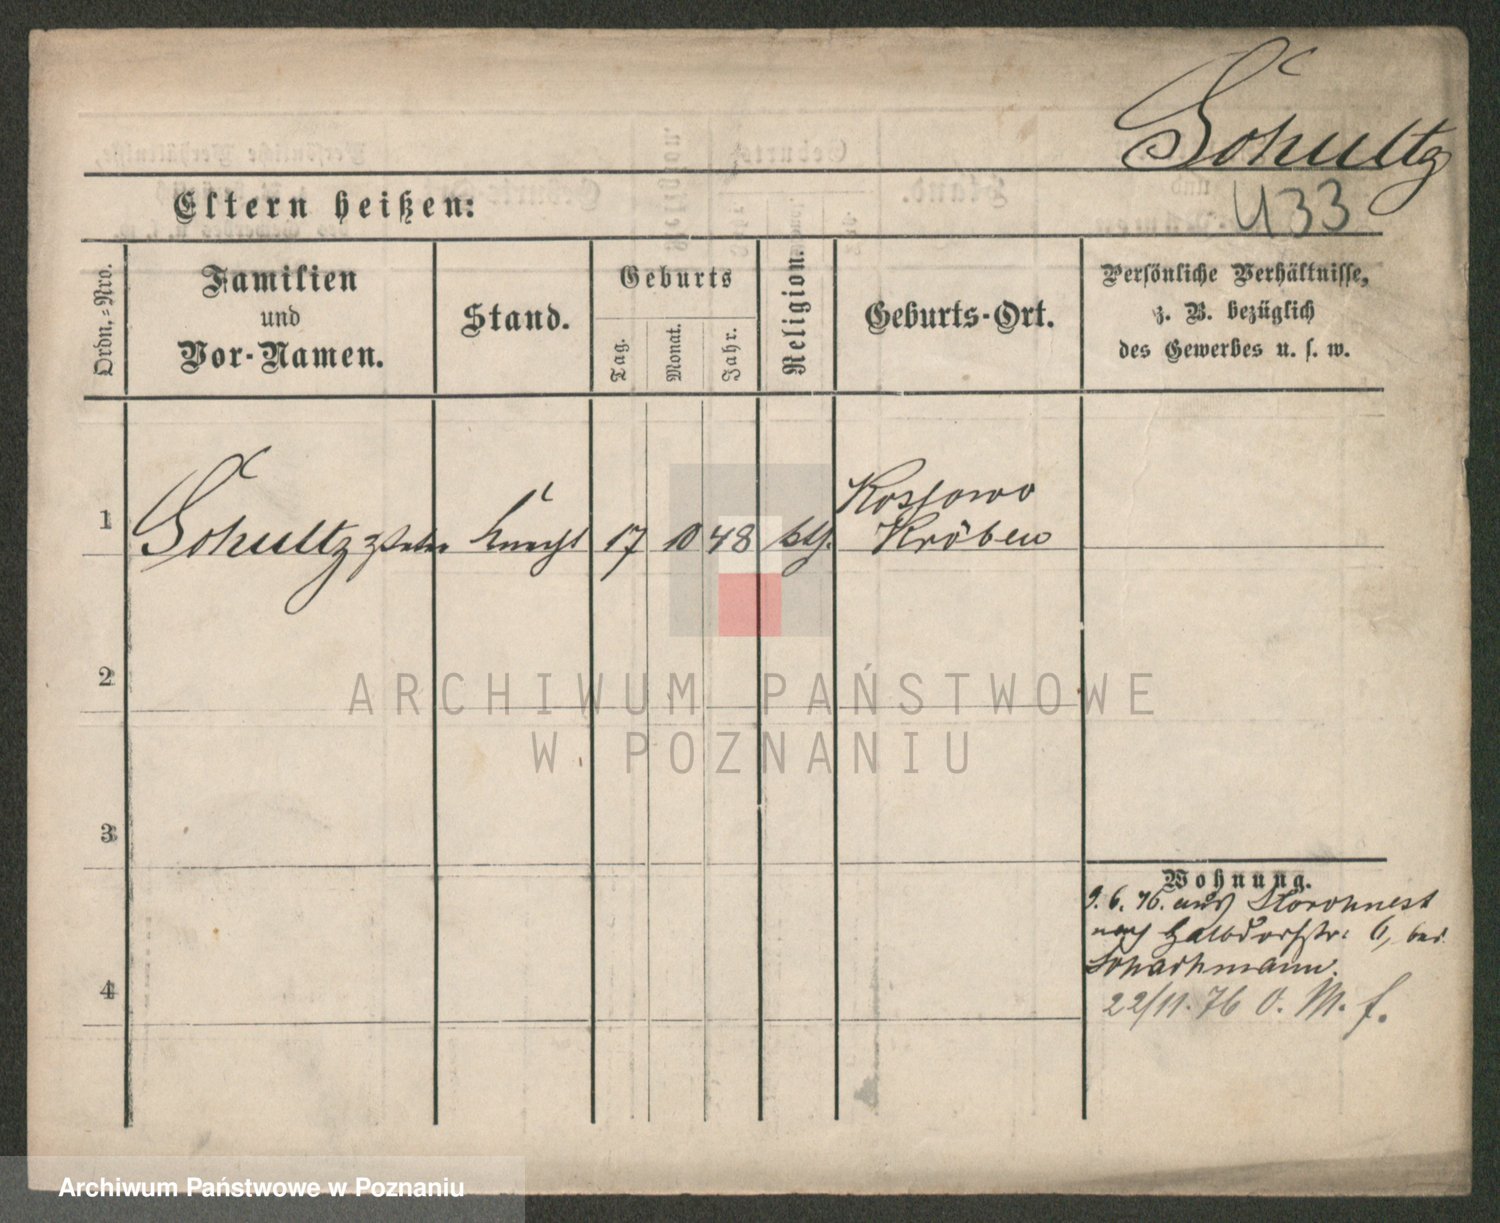 Schultz
U 33
Eltern heißen:
Ordn.=Nro.
Familien
und
Vor-Namen.
Stand.
Geburts
Tag.
Monat.
Jahr.
Religion.
Geburts-Ort.
Persönliche Verhältnisse,
z. B. bezüglich
des Gewerbes u. s. w.
1
Schultz Peter
Knecht
17
10
48
kth.
Kossowo
Kröben
2
3
4
Wohnung.
9. 6. 76. aus Storchnest
nach Halbdorfstr. 6, bei
Schachmann.
22/11. 76 O. M. f.
ARCHIWUM PAŃSTWOWE
W POZNANIU
Archiwum Państwowe w Poznaniu